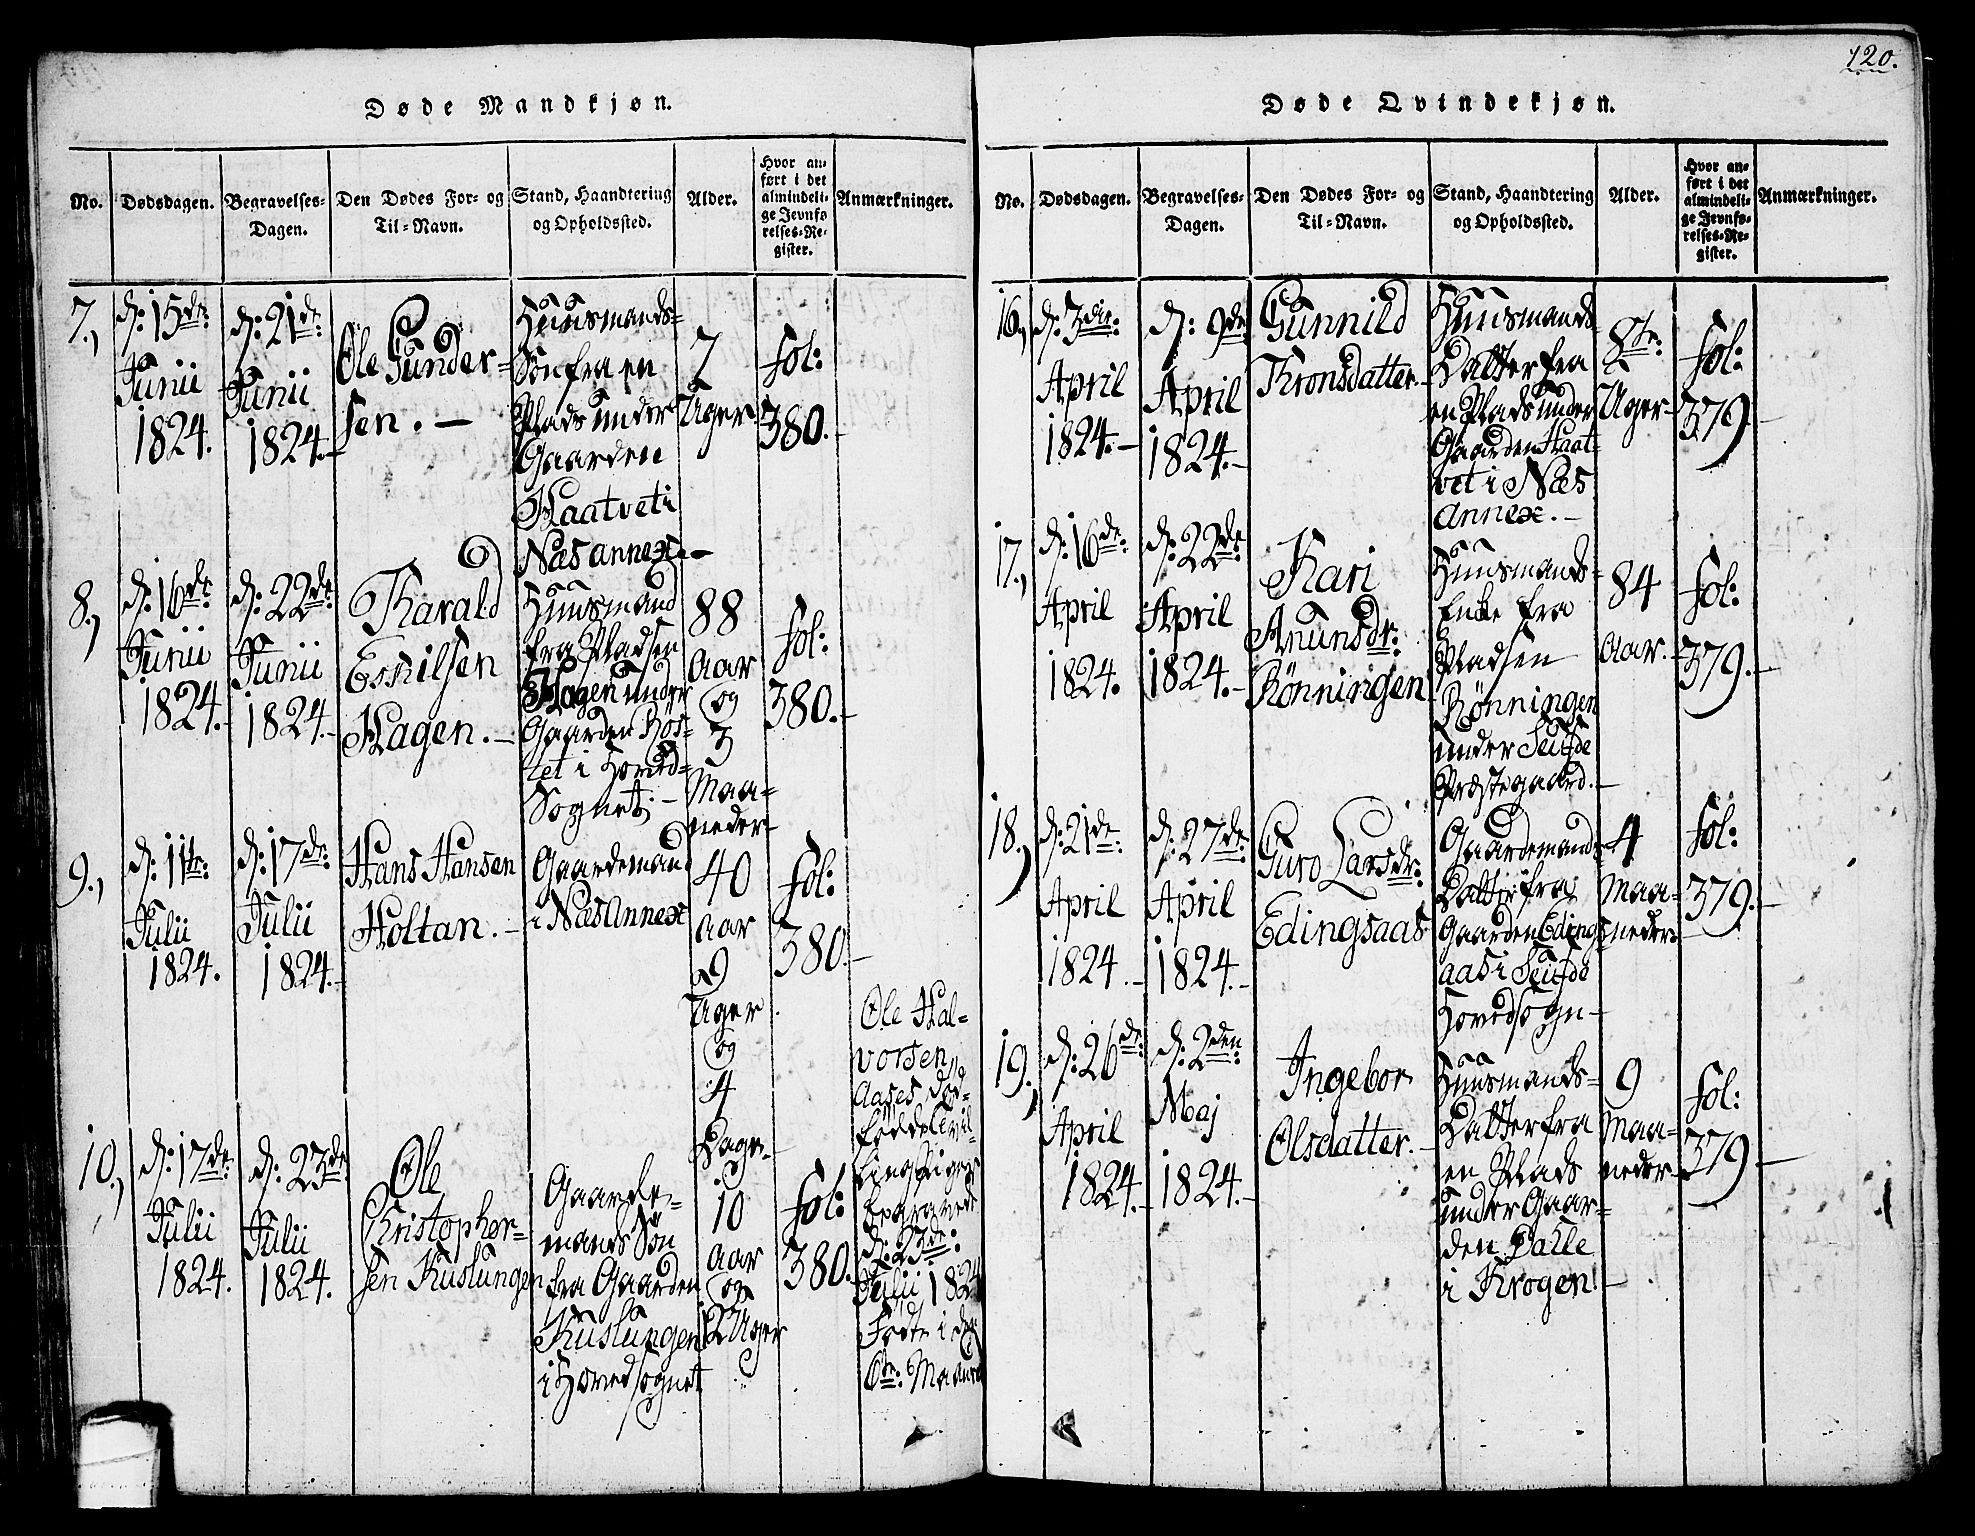 120.
Døde Mandkjøn.
No.
Dødsdagen.
Begravelses-
Dagen.
Den Dødes For- og
Til-Navn.
Stand, Haandtering
og Opholdssted.
Alder.
Hvor an-
ført i det
almindeli-
ge Jevnfø-
relses-Re-
gister.
Anmærkninger.
7.,
d: 15de:
Junii
1824.
d: 21de:
Junii
1824.-
Ole Gunder-
sen. -
Huusmands-
Søn fra en
Plads under
Gaarden
Haatvet i
Næs annex.-
7
Uger
fol:
380.-
8.,
d: 16de:
Junii
1824.-
d: 22de:
Junii
1824.-
Harald
Eskilsen
Hagen.-
Huusmand
fra Pladsen
Hagen under
Gaarden Ros-
tet i Hoved-
Sognet.-
88
Aar
og
3
Maa-
neder
fol:
380.-
9.,
d: 11te:
Julii
1824.
d: 17de:
Julii
1824.-
Hans Hansen
Holtan.-
Gaardemand
i Næs Annex
40
Aar
9
Uger
og
4
Dage.-
fol:
380.-
10.,
d: 17de:
Julii
1824.
d: 23de
Julii
1824.
Ole
Kristopher-
sen Kuslungen
Gaarde-
mands Søn
fra Gaarden
Kuslungen
i Hovedsognet
10
Aar
og
2 Uger
fol:
380.-
Ole Hal-
vorsen
Aases død-
fødde
d: 23de:
Julii 1824
Fødte i den
Maaned
Døde Qvindekjøn.
No.
Dødsdagen.
Begravelses-
Dagen.
Den Dødes For- og
Til-Navn.
Stand, Haandtering
og Opholdssted.
Alder.
Hvor an-
ført i det
almindeli-
ge Jevnfø-
relses-Re-
gister.
Anmærkninger.
16.,
d: 3die:
April
1824.-
d: 9de
April
1824.-
Gunnild
Kronsdatter.
Huusmands
Datter fra
en Plads under
Gaarden Haat-
vet i Næs
Annex.-
8te:
Uger-
fol:
379.-
17.,
d: 16de:
April
1824.
d: 22de
April
1824.-
Kari
Anunsdr:
Rønningen
Huusmands-
Enke fra
Pladsen
Rønningen
under Seufde
Præstegaard.-
84
Aar.-
fol:
379.-
18.,
d: 21de
April
1824.-
d: 27de:
April
1824.-
Guro Larsdr:
Edingsaas
Gaardemands
Datter fra
Gaarden Edings-
aas i Seufde
Hovedsogn-
4
Maa-
neder-
fol:
379.-
19.,
d: 26de:
April
1824.-
d: 2den:
Maj
1824.-
Ingebor
Olsdatter.-
Huusmands-
Datter fra
en Plads
under Gaar-
den Dalle
i Krogen.-
9
Maa-
neder-
fol:
379.-